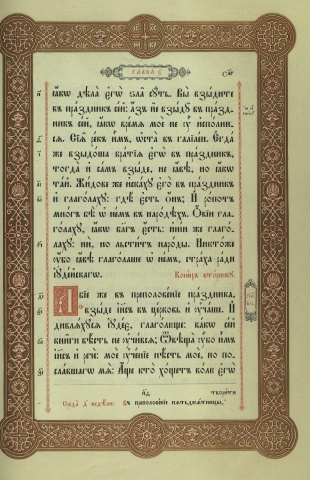 ГЛАВА З҃
ꙗ҆́кѡ дѣла̀ є҆гѡ̀ ѕла̀ сꙋ́ть. Вы̀ взы́дите
въ пра́здникъ се́й: а҆́зъ не взы́дꙋ въ пра́зд-
никъ се́й, ꙗ҆́кѡ вре́мѧ моѐ не ᲂу҆̀ и҆спо́лни-
сѧ. Сїѧ̑ ре́къ и҆̀мъ, ѡ҆ста̀ въ галїле́и. Є҆гда́
же взыдо́ша бра́тїѧ є҆гѡ̀ въ пра́здникъ,
тогда̀ и҆ са́мъ взы́де, не ꙗ҆́вѣ, но ꙗ҆́кѡ
та́й. Жи́дове же и҆ска́хꙋ є҆гѡ̀ въ пра́здникъ
и҆ глаго́лахꙋ: гдѣ̀ є҆́сть ѻ҆́нъ; И҆ ро́потъ
мно́гъ бѣ̀ ѡ҆ не́мъ въ наро́дѣхъ. Ѻ҆́вїи гла-
го́лахꙋ, ꙗ҆́кѡ бла́гъ є҆́сть: и҆ні́и же глаго́-
лахꙋ: нѝ, но льсти́тъ наро́ды. Никто́же
ᲂу҆́бѡ ꙗ҆́вѣ глаго́лаше ѡ҆ не́мъ, стра́ха ра́ди
і҆ꙋде́йскагѡ. Коне́цъ вто́рникꙋ.
А҆́бїе же въ преполове́нїе пра́здника,
взы́де і҆и҃съ во це́рковь и҆ ᲂу҆ча́ше. И҆
дивлѧ́хꙋсѧ і҆ꙋде́є, глаго́люще: ка́кѡ се́й
кни̑ги вѣ́сть не ᲂу҆чи́всѧ; Ѿвѣща̀ ᲂу҆́бѡ и҆̀мъ
і҆и҃съ и҆ речѐ: моѐ ᲂу҆че́нїе нѣ́сть моѐ, но по-
сла́вшагѡ мѧ̀: А҆́ще кто̀ хо́щетъ во́лю є҆гѡ̀
твори́ти
Среда̀ д҃ недѣ́ли: въ преполове́нїе пѧтьдесѧ́тницы,